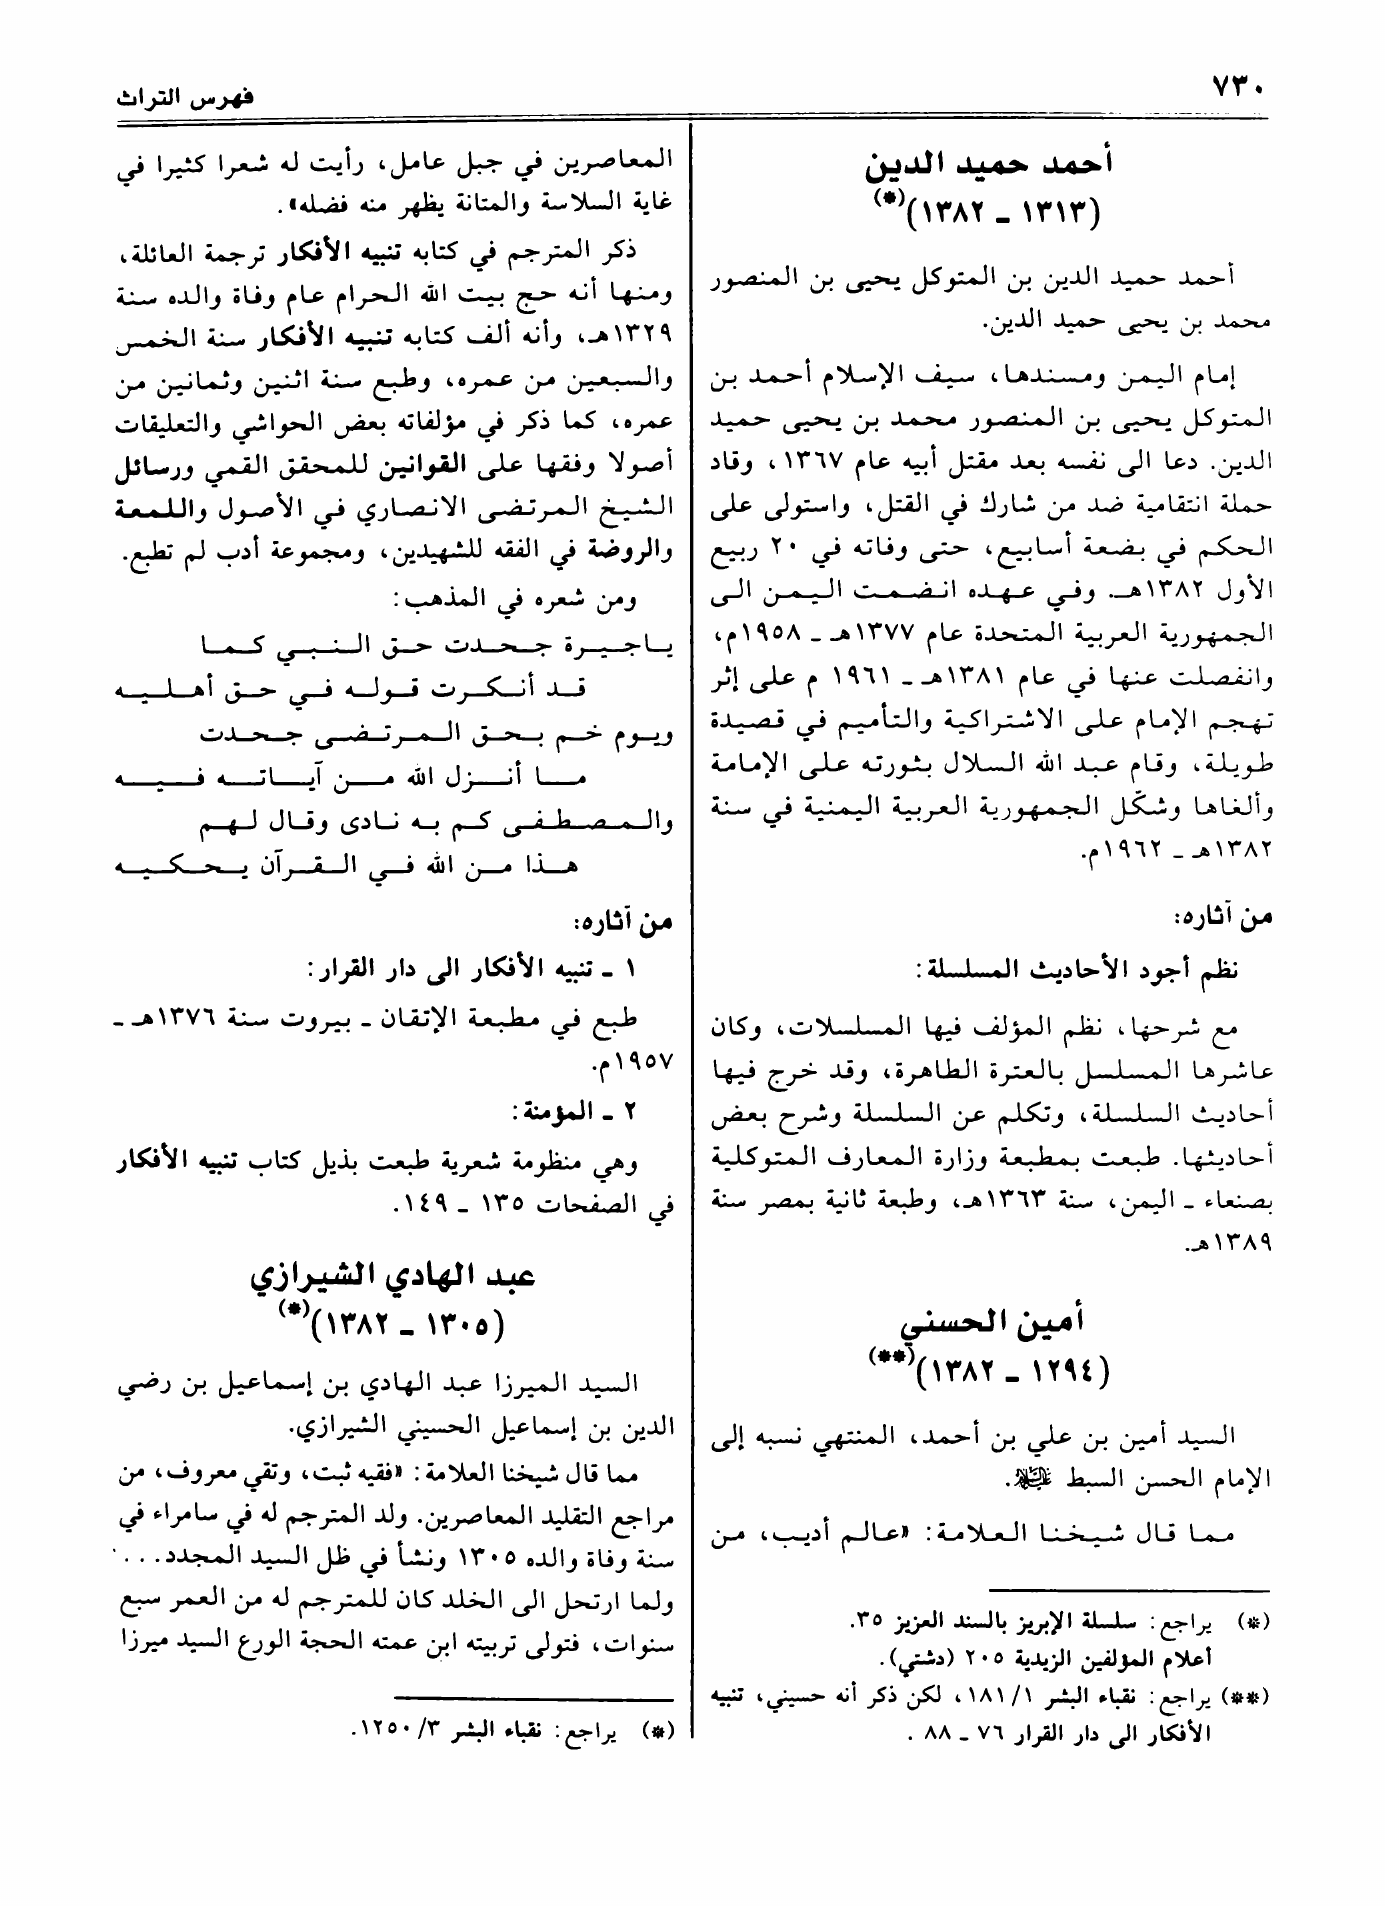 ٧٣٠
فهرس التراث
أحمد حميد الدين
(١٣١٣ ـ ١٣٨٢)(*)
أحمد حميد الدين بن المتوكل يحيى بن المنصور
محمد بن يحيى حميد الدين.
إمام اليمن ومسندها، سيف الإسلام أحمد بن
المتوكل يحيى بن المنصور محمد بن يحيى حميد
الدين. دعا الى نفسه بعد مقتل أبيه عام ١٣٦٧، وقاد
حملة انتقامية ضد من شارك في القتل، واستولى على
الحكم في بضعة أسابيع، حتى وفاته في ٢٠ ربيع
الأول ١٣٨٢هـ. وفي عهده انضمت اليمن الى
الجمهورية العربية المتحدة عام ١٣٧٧هـ ـ ١٩٥٨م،
وانفصلت عنها في عام ١٣٨١هـ ـ ١٩٦١ م على إثر
تهجم الإمام على الاشتراكية والتأميم في قصيدة
طويلة، وقام عبد الله السلال بثورته على الإمامة
وألغاها وشكّل الجمهورية العربية اليمنية في سنة
١٣٨٢هـ ـ ١٩٦٢م.
من آثاره:
نظم أجود الأحاديث المسلسلة:
مع شرحها، نظم المؤلف فيها المسلسلات، وكان
عاشرها المسلسل بالعترة الطاهرة، وقد خرج فيها
أحاديث السلسلة، وتكلم عن السلسلة وشرح بعض
أحاديثها. طبعت بمطبعة وزارة المعارف المتوكلية
بصنعاء ـ اليمن، سنة ١٣٦٣هـ، وطبعة ثانية بمصر سنة
١٣٨٩هـ.
أمين الحسني
(١٢٩٤ ـ ١٣٨٢)(**)
السيد أمين بن علي بن أحمد، المنتهي نسبه إلى
الإمام الحسن السبط عليه السلام.
مما قال شيخنا العلامة: «عالم أديب، من
(*) يراجع: سلسلة الإبريز بالسند العزيز ٣٥.
أعلام المؤلفين الزيدية ٢٠٥ (دشتي).
(**) يراجع: نقباء البشر ١/ ١٨١، لكن ذكر أنه حسيني، تنبيه
الأفكار الى دار القرار ٧٦ ـ ٨٨ .
المعاصرين في جبل عامل، رأيت له شعرا كثيرا في
غاية السلاسة والمتانة يظهر منه فضله».
ذكر المترجم في كتابه تنبيه الأفكار ترجمة العائلة،
ومنها أنه حج بيت الله الحرام عام وفاة والده سنة
١٣٢٩هـ، وأنه ألف كتابه تنبيه الأفكار سنة الخمس
والسبعين من عمره، وطبع سنة اثنين وثمانين من
عمره، كما ذكر في مؤلفاته بعض الحواشي والتعليقات
أصولا وفقها على القوانين للمحقق القمي ورسائل
الشيخ المرتضى الانصاري في الأصول واللمعة
والروضة في الفقه للشهيدين، ومجموعة أدب لم تطبع.
ومن شعره في المذهب:
ياجيرة جحدت حق النبي كما
قد أنكرت قوله في حق أهليه
ويوم خم بحق المرتضى جحدت
ما أنزل الله من آياته فيه
والمصطفى كم به نادى وقال لهم
هذا من الله في القرآن يحكيه
من آثاره:
١ ـ تنبيه الأفكار الى دار القرار:
طبع في مطبعة الإتقان ـ بيروت سنة ١٣٧٦هـ ـ
١٩٥٧م.
٢ ـ المؤمنة:
وهي منظومة شعرية طبعت بذيل كتاب تنبيه الأفكار
في الصفحات ١٣٥ ـ ١٤٩.
عبد الهادي الشيرازي
(١٣٠٥ ـ ١٣٨٢)(*)
السيد الميرزا عبد الهادي بن إسماعيل بن رضي
الدين بن إسماعيل الحسيني الشيرازي.
مما قال شيخنا العلامة: «فقيه ثبت، وتقي معروف، من
مراجع التقليد المعاصرين. ولد المترجم له في سامراء في
سنة وفاة والده ١٣٠٥ ونشأ في ظل السيد المجدد....
ولما ارتحل الى الخلد كان للمترجم له من العمر سبع
سنوات، فتولى تربيته ابن عمته الحجة الورع السيد ميرزا
(*) يراجع: نقباء البشر ٣/ ١٢٥٠.